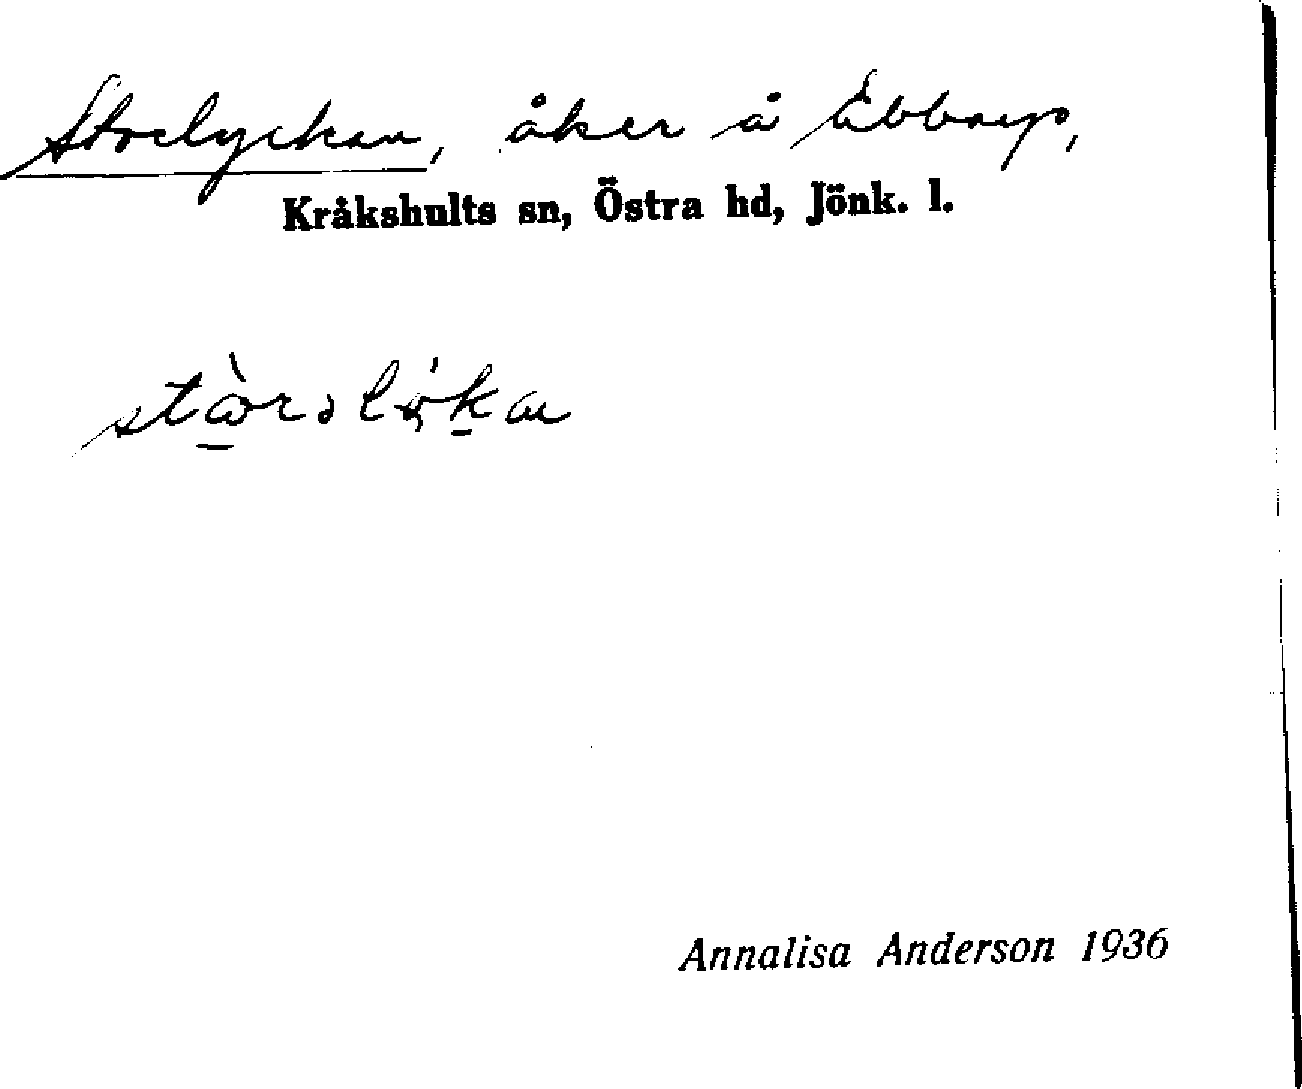 Storelyckan, åker å Ebbarp,
Kråkshults sn, Östra hd, Jönk. l.
Annalisa Anderson 1936